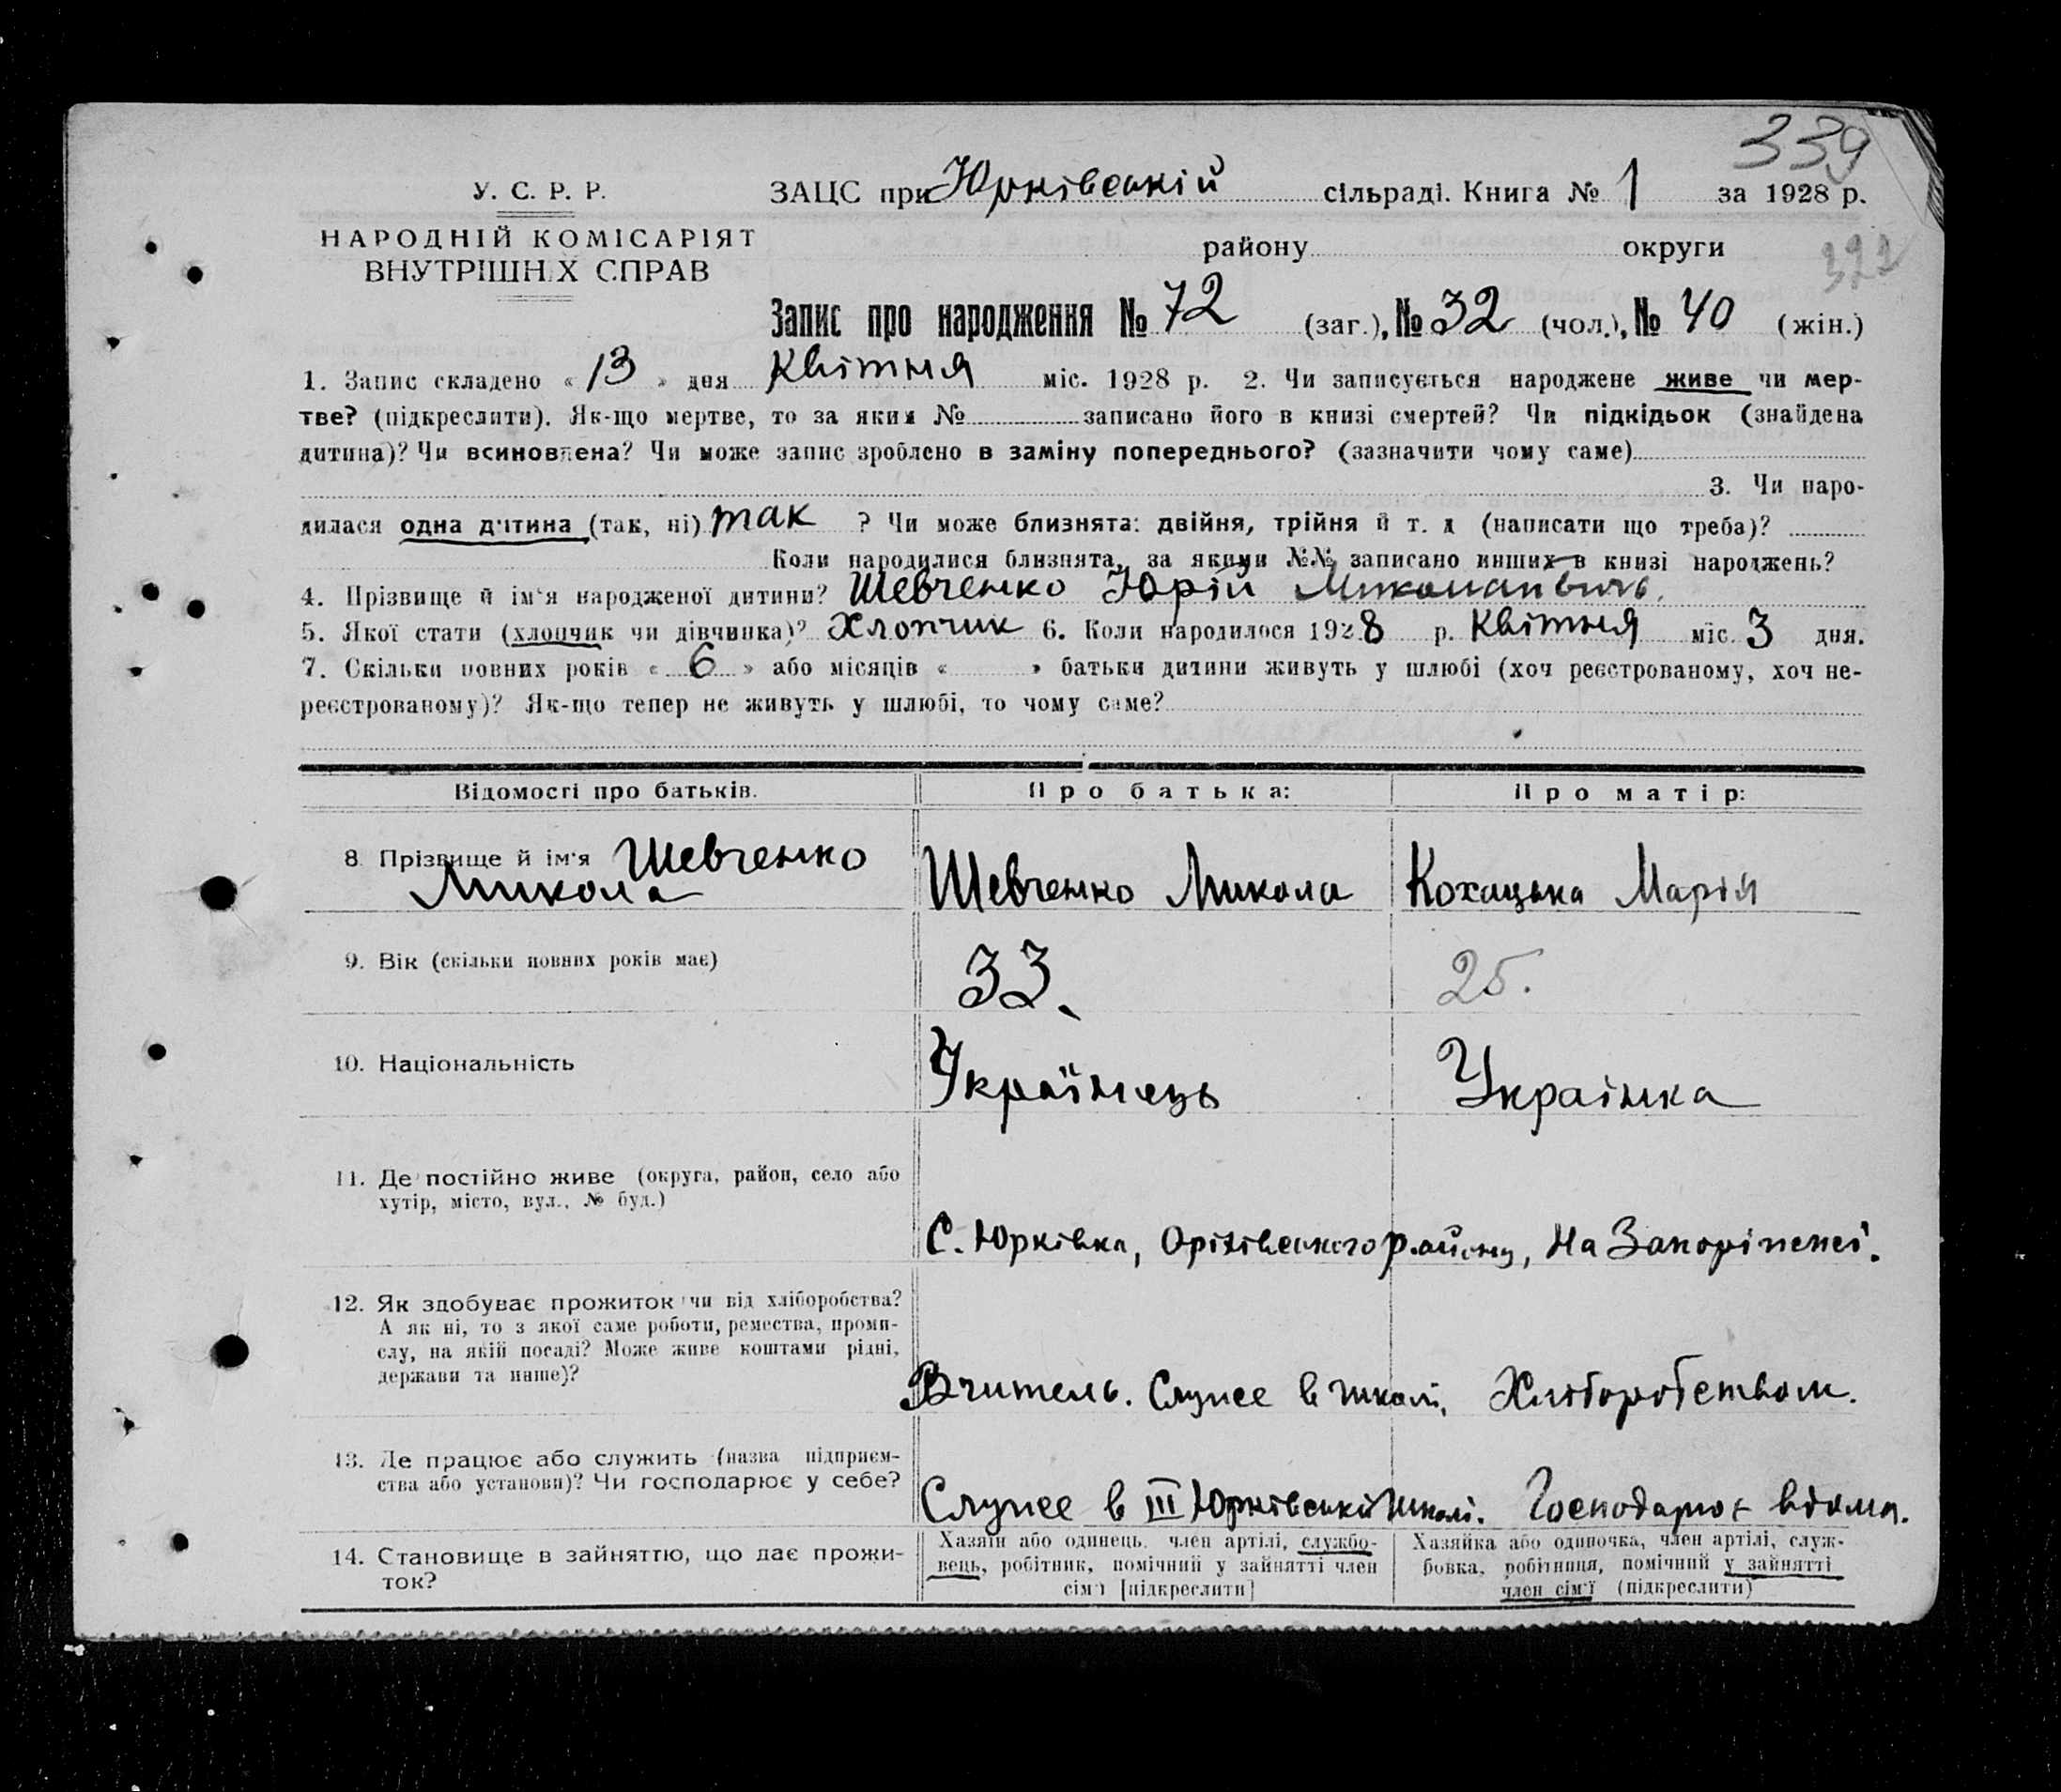 339
У. С. Р. Р.
ЗАЦС при Юрківській сільраді. Книга № 1 за 1928 р.
НАРОДНІЙ КОМІСАРІЯТ
ВНУТРІШНІХ СПРАВ
району округи
Запис про народження № 72 (заг.), № 32 (чол.), № 40 (жін.)
1. Запис складено « 13 » дня Квітня міс. 1928 р. 2. Чи записується народжене живе чи мер-
тве? (підкреслити). Як-що мертве, то за яким № записано його в книзі смертей? Чи підкідьок (знайдена
дитина)? Чи всиновлена? Чи може запис зроблено в заміну попереднього? (зазначити чому саме)
3. Чи наро-
дилася одна дитина (так, ні) так ? Чи може близнята: двійня, трійня й т. д (написати що треба)?
Коли народилися близнята, за якими №№ записано инших в книзі народжень?
4. Прізвище й ім'я народженої дитини? Шевченко Юрій
5. Якої стати (хлопчик чи дівчинка)? Хлопчик 6. Коли народилося 1928 р. Квітня міс. 3 дня.
7. Скільки повних років « 6 » або місяців « » батьки дитини живуть у шлюбі (хоч реєстрованому, хоч не-
реєстрованому)? Як-що тепер не живуть у шлюбі, то чому саме?
Відомості про батьків. Про батька: Про матір:
8. Прізвище й ім'я Шевченко
Микола Шевченко Микола Кохацька Марія
9. Вік (скільки повних років має) 33 25.
10. Національність Українець Украінка
11. Де постійно живе (округа, район, село або
хутір, місто, вул., № буд.)
С. Юрківка, Оріхівського району, на
12. Як здобуває прожиток чи від хліборобства?
А як ні, то з якої саме роботи, ремества, проми-
слу, на якій посаді? Може живе коштами рідні,
держави та инше)?
Вчитель. Служе в школі. Хліборобством.
13. Де працює або служить (назва підприєм-
ства або установи)? Чи господарює у себе?
Служе в III Юрківській школі. Господарює вдома.
14. Становище в зайняттю, що дає прожи-
ток?
Хазяїн або одинець, член артілі, службо-
вець, робітник, помічний у зайнятті член
сім'ї [підкреслити]
Хазяйка або одиночка, член артілі, служ-
бовка, робітниця, помічний у зайнятті
член сім'ї (підкреслити)